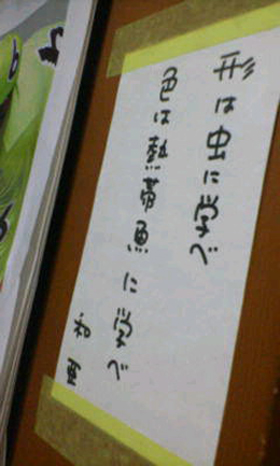 形は虫に学べ
色は熱帯魚に学べ